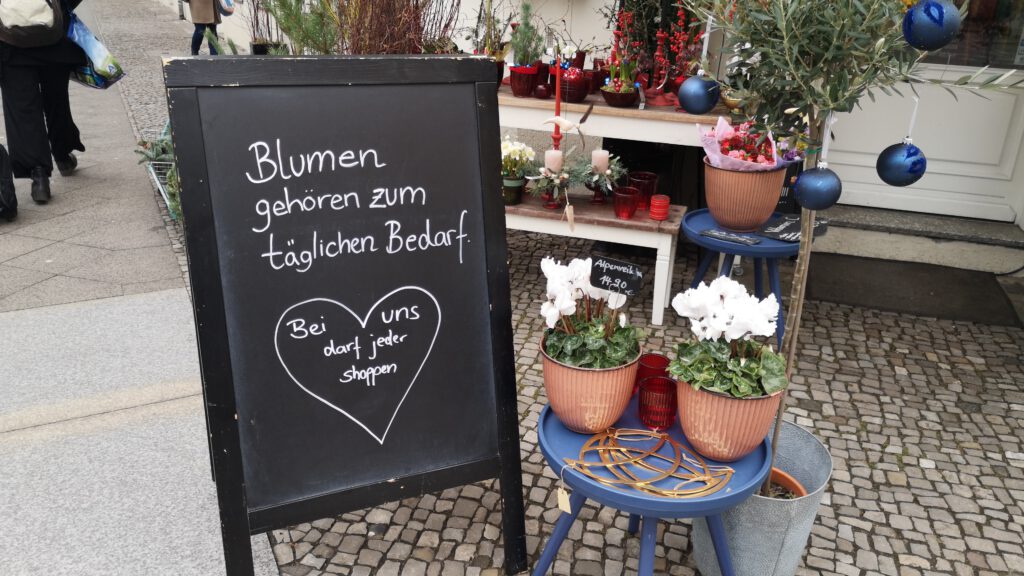 Blumen
gehören zum
täglichen Bedarf.
Bei uns
darf jeder
shoppen
14,90